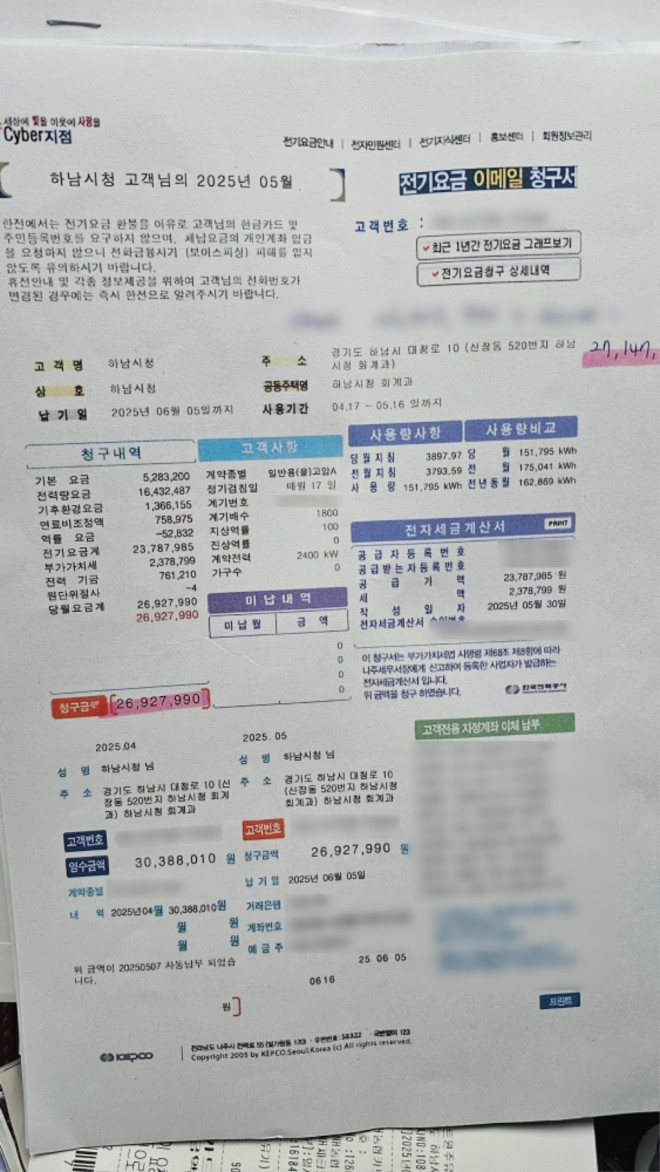 세상에 빛을 이웃에 사랑을
Cyber지점
전기요금안내 | 전자민원센터 | 전기지식센터 | 홍보센터 | 회원정보관리
하남시청 고객님의 2025년 05월
전기요금 이메일 청구서
한전에서는 전기요금 환불을 이유로 고객님의 현금카드 및
주민등록번호를 요구하지 않으며, 세납요금의 개인계좌 입금
을 요청하지 않으니 전화금융사기 (보이스피싱) 피해를 입지
않도록 유의하시기 바랍니다.
휴전안내 및 각종 정보제공을 위하여 고객님의 전화번호가
변경된 경우에는 즉시 한전으로 알려주시기 바랍니다.
고객번호 :
최근 1년간 전기요금 그래프보기
전기요금청구 상세내역
고 객 명 하남시청
상 호 하남시청
납 기 일 2025년 06월 05일까지
주 소 경기도 하남시 대청로 10 (신장동 520번지 하남
시청 회계과)
공동주택명 하남시청 회계과
사용기간 04.17 ~ 05.16 일까지
27,147,
청구내역
기본 요금 5,283,200
전력량요금 16,432,487
기후환경요금 1,366,155
연료비조정액 758,975
역률 요금 -52,832
전기요금계 23,787,985
부가가치세 2,378,799
전력 기금 761,210
원단위절사 -4
당월요금계 26,927,990
26,927,990
청구금액 26,927,990
고객사항
계약종별 일반용(을)고압A
정기검침일 매월 17 일
계기번호
계기배수 1800
지상역률 100
진상역률 0
계약전력 2400 kW
가구수 0
미납내역
미납월 금 액
0
0
0
0
사용량사항
당월지침 3897.97
전월지침 3793.59
사 용 량 151,795 kWh
사용량비교
당 월 151,795 kWh
전 월 175,041 kWh
전년동월 162,869 kWh
전자세금계산서 PRINT
공급자등록번호
공급받는자등록번호
공 급 가 액 23,787,985 원
세 액 2,378,799 원
작 성 일 자 2025년 05월 30일
전자세금계산서 승인번호
이 청구서는 부가가치세법 시행령 제68조 제8항에 따라
나주세무서장에게 신고하여 등록한 사업자가 발급하는
전자세금계산서 입니다.
위 금액을 청구 하였습니다.
한국전력공사
고객전용 지정계좌 이체 납부
2025.04
성 명 하남시청 님
주 소 경기도 하남시 대청로 10 (신
장동 520번지 하남시청 회계
과) 하남시청 회계과
고객번호
영수금액 30,388,010 원
계약종별
내 역 2025년04월 30,388,010원
월 원
월 원
위 금액이 20250507 자동납부 되었습
니다.
2025. 05
성 명 하남시청 님
주 소 경기도 하남시 대청로 10
(신장동 520번지 하남시청
회계과) 하남시청 회계과
고객번호
청구금액 26,927,990 원
납 기 일 2025년 06월 05일
거래은행
계좌번호
예 금 주
25 06 05
0616
원
프린트
KEPCO
전라남도 나주시 전력로 55 (빛가람동 120) · 우편번호: 58322 · 국번없이 123
Copyright 2005 by KEPCO.Seoul,Korea (c) All rights reserved.